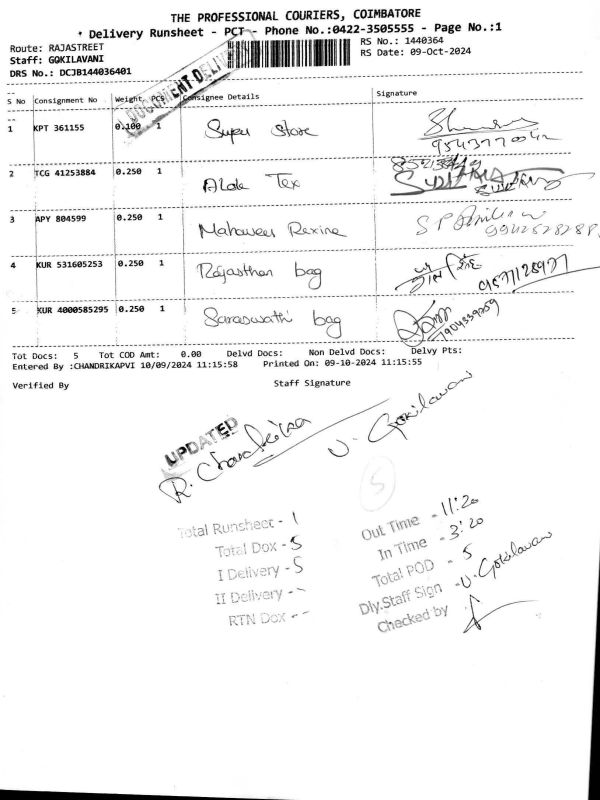 THE PROFESSIONAL COURIERS, COIMBATORE
* Delivery Runsheet - PCT - Phone No.:0422-3505555 - Page No.:1
Route: RAJASTREET
RS No.: 1440364
Staff: GOKILAVANI
RS Date: 09-Oct-2024
DRS No.: DCJB144036401
S No Consignment No Weight PCS Consignee Details Signature
1 KPT 361155 0.100 1 Super Store
2 TCG 41253884 0.250 1 Alode Tex
3 APY 804599 0.250 1 Mahaveer Rexine
4 KUR 531605253 0.250 1 Rajasthan bag
5 KUR 4000585295 0.250 1 Saraswathi bag
Tot Docs: 5 Tot COD Amt: 0.00 Delvd Docs: Non Delvd Docs: Delvy Pts:
Entered By :CHANDRIKAPVI 10/09/2024 11:15:58 Printed On: 09-10-2024 11:15:55
Verified By Staff Signature
UPDATED
R. Chandrika
V. Gokilavani
5
Total Runsheet - 1
Total Dox - 5
I Delivery - 5
II Delivery - -
RTN Dox - -
Out Time - 11:20
In Time - 3:20
Total POD - 5
Dly.Staff Sign - V. Gokilavani
Checked by